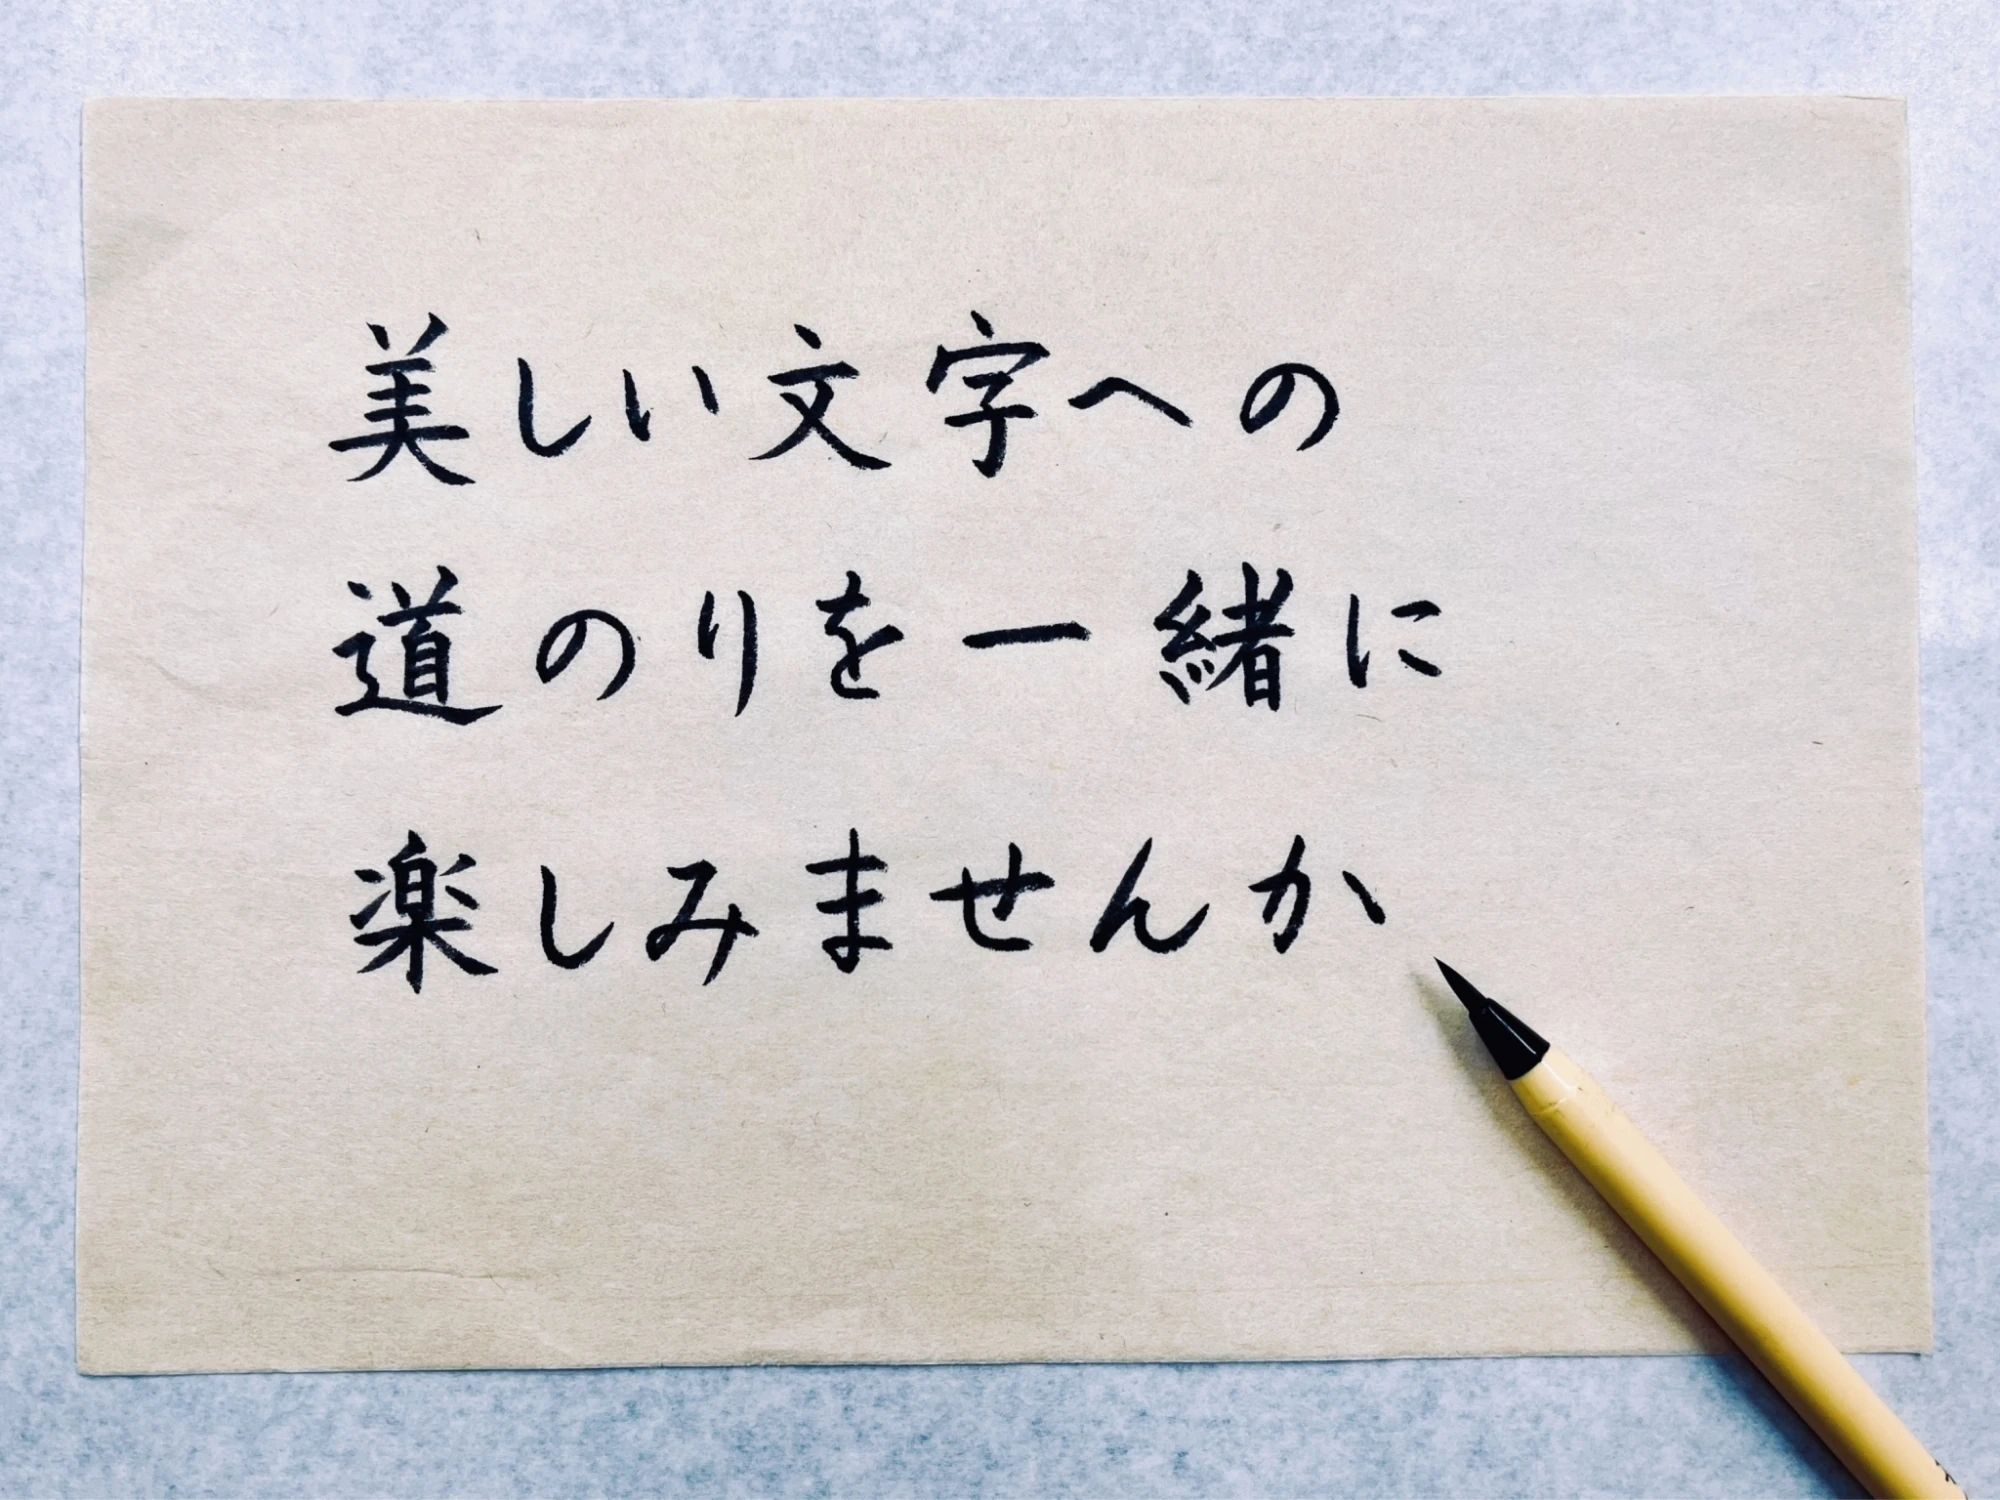 美しい文字への
道のりを一緒に
楽しみませんか